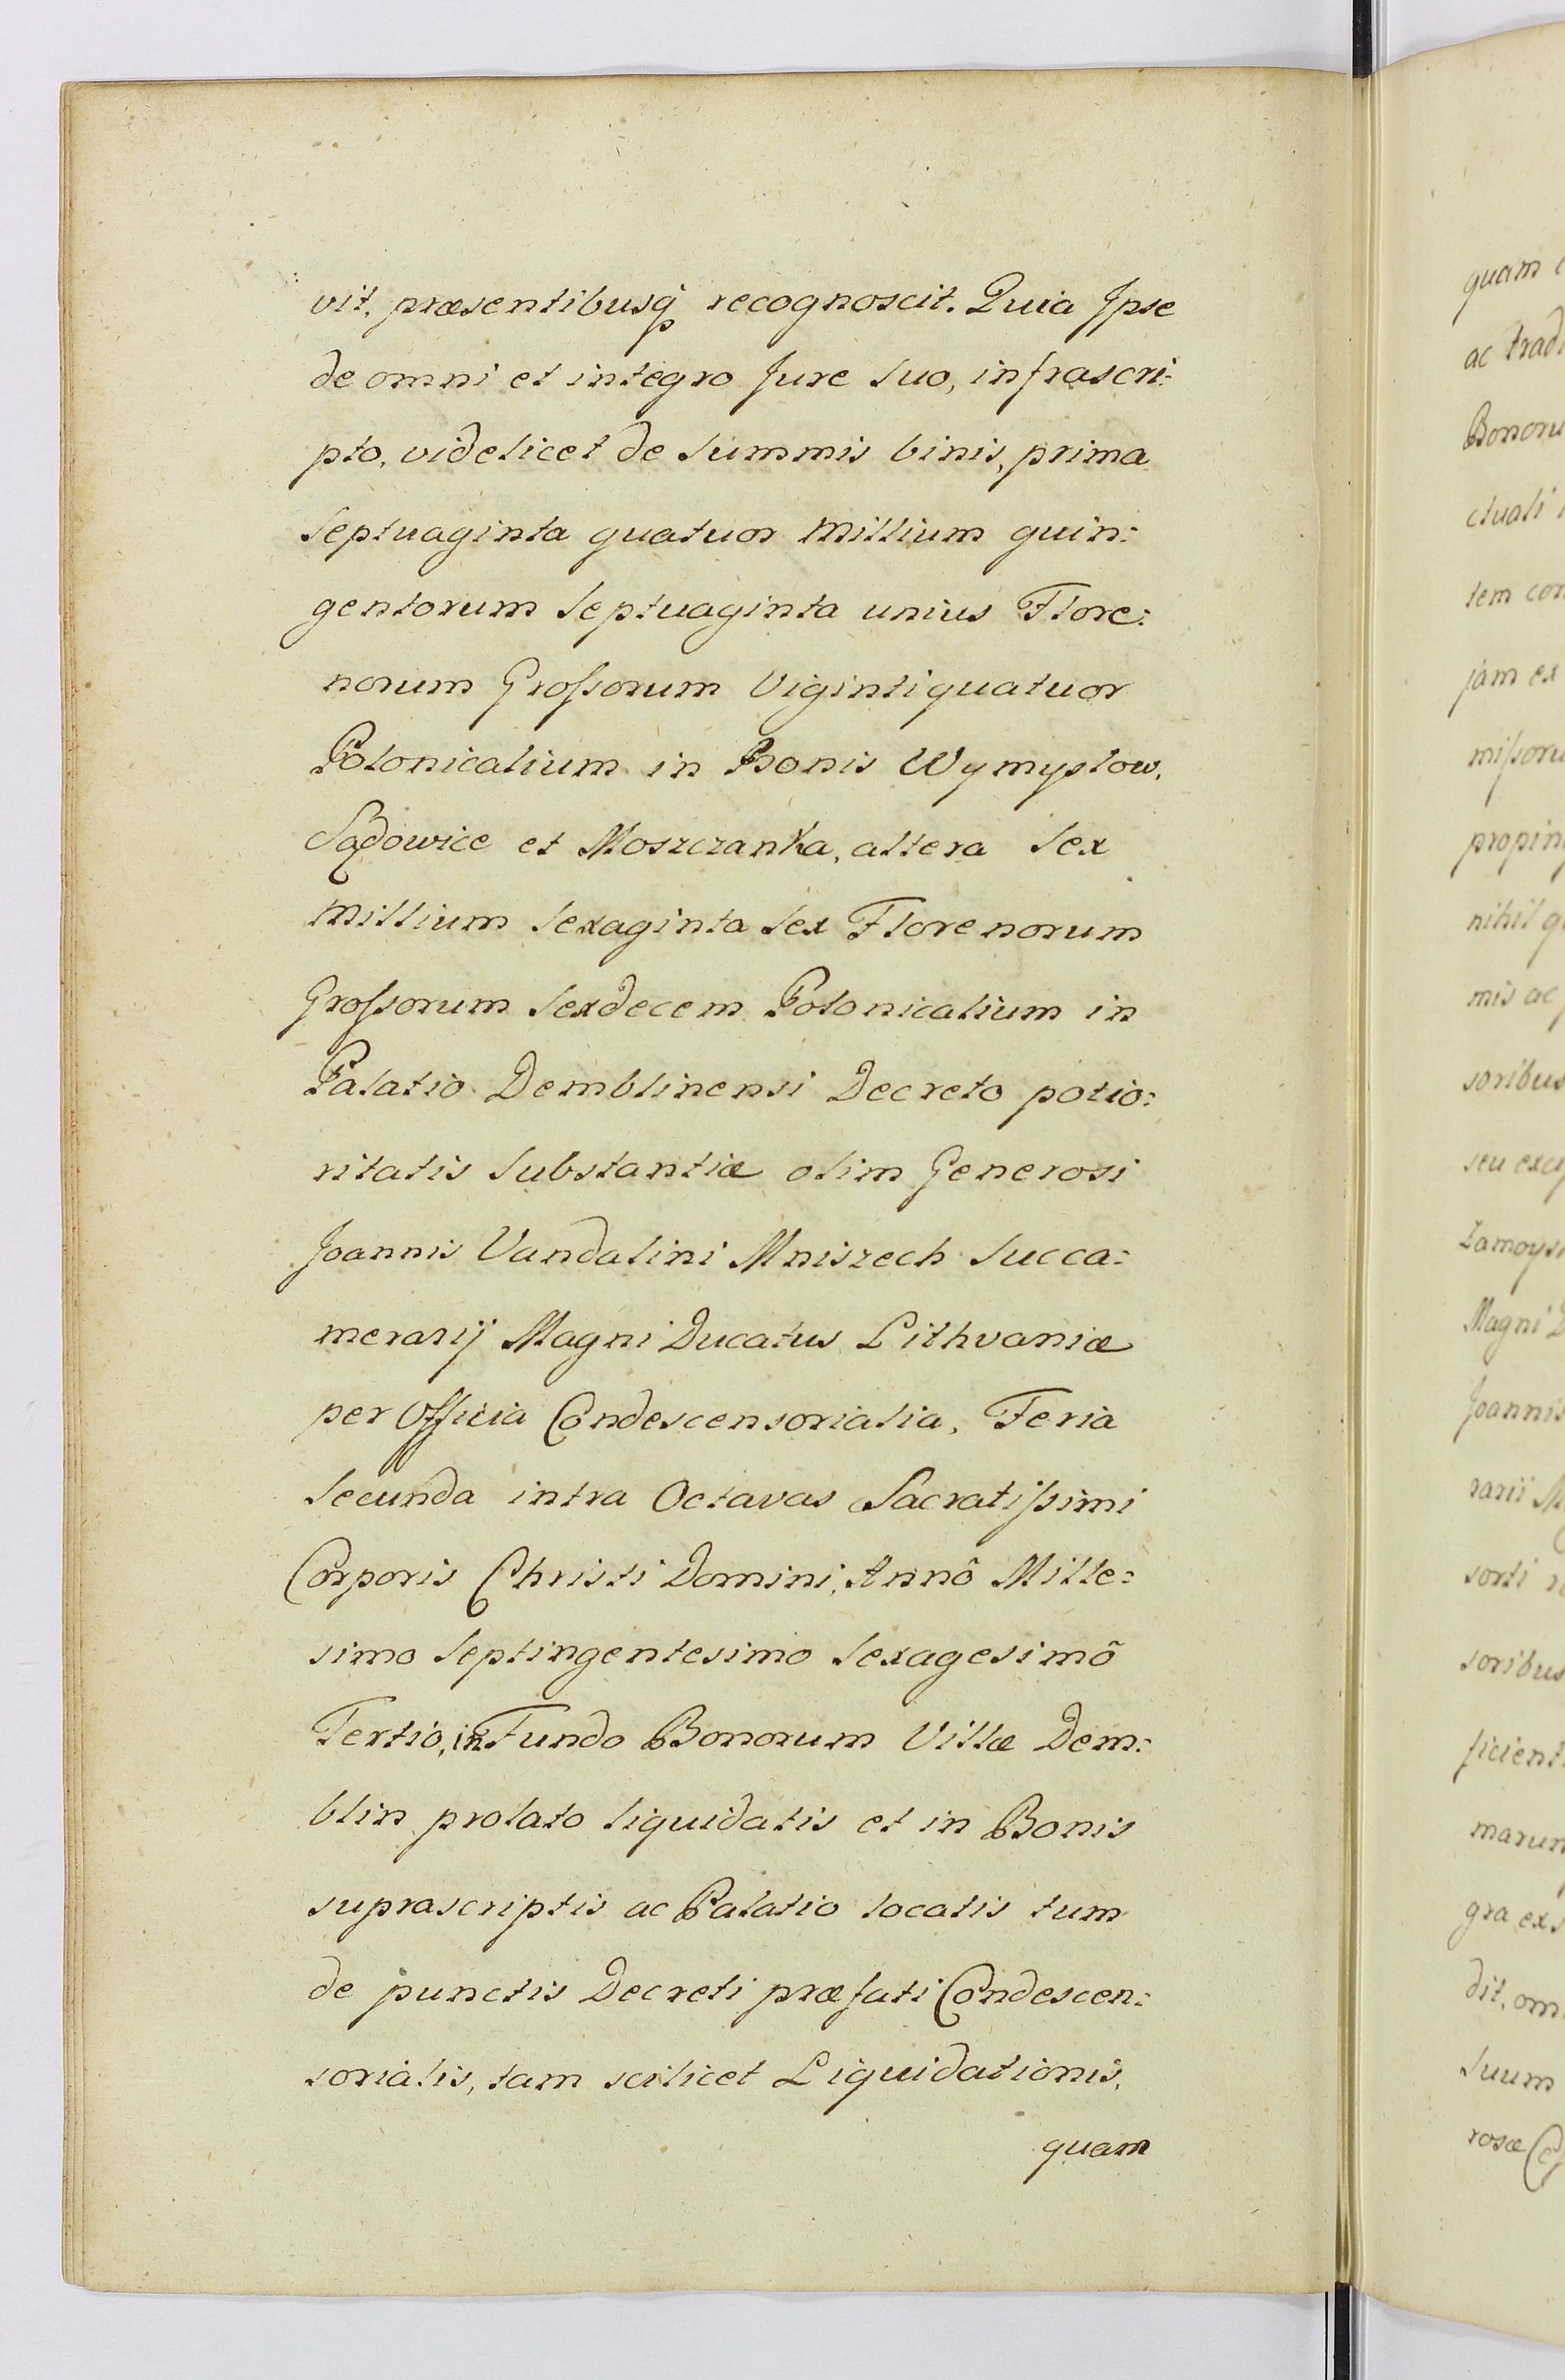 vit, præsentibusq̃ recognoscit. Quia Ipse
de omni et integro Jure suo, infrascri:
pto, videlicet de Summis binis, prima
Septuaginta quatuor Millium quin:
gentorum Septuaginta unius Flore:
norum Grossorum Vigintiquatuor
Polonicalium in Bonis Wymysłow,
Sądowice et Moszczanka, altera Sex
Millium Sexaginta Sex Florenorum
Grossorum Sexdecem Polonicalium in
Palatio Demblinensi Decreto potio:
ritatis Substantiæ olim Generosi
Joannis Vandalini Mniszech Succa:
merarij Magni Ducatus Lithvaniæ
per Officia Condescensorialia, Feria
Secunda intra Octavas Sacratissimi
Corporis Christi Domini, Annô Mille:
simo Septingentesimo Sexagesimô
Tertio, in Fundo Bonorum Villæ Dem:
blin prolato liquidatis et in Bonis
suprascriptis ac Palatio locatis tum
de punctis Decreti præfati Condescen:
sorialis, tam scilicet Liquidationis,
quam
quam
ac trad
Bonoru
ctuali
tem con
jam ex
missoru
propin
nihil q
mis ac
soribus
seu exc
Zamoys
Magni D
Joannis
rarii M
sorti
soribus
ficient
marum
gra exs
dit, om
Suum
rosæ